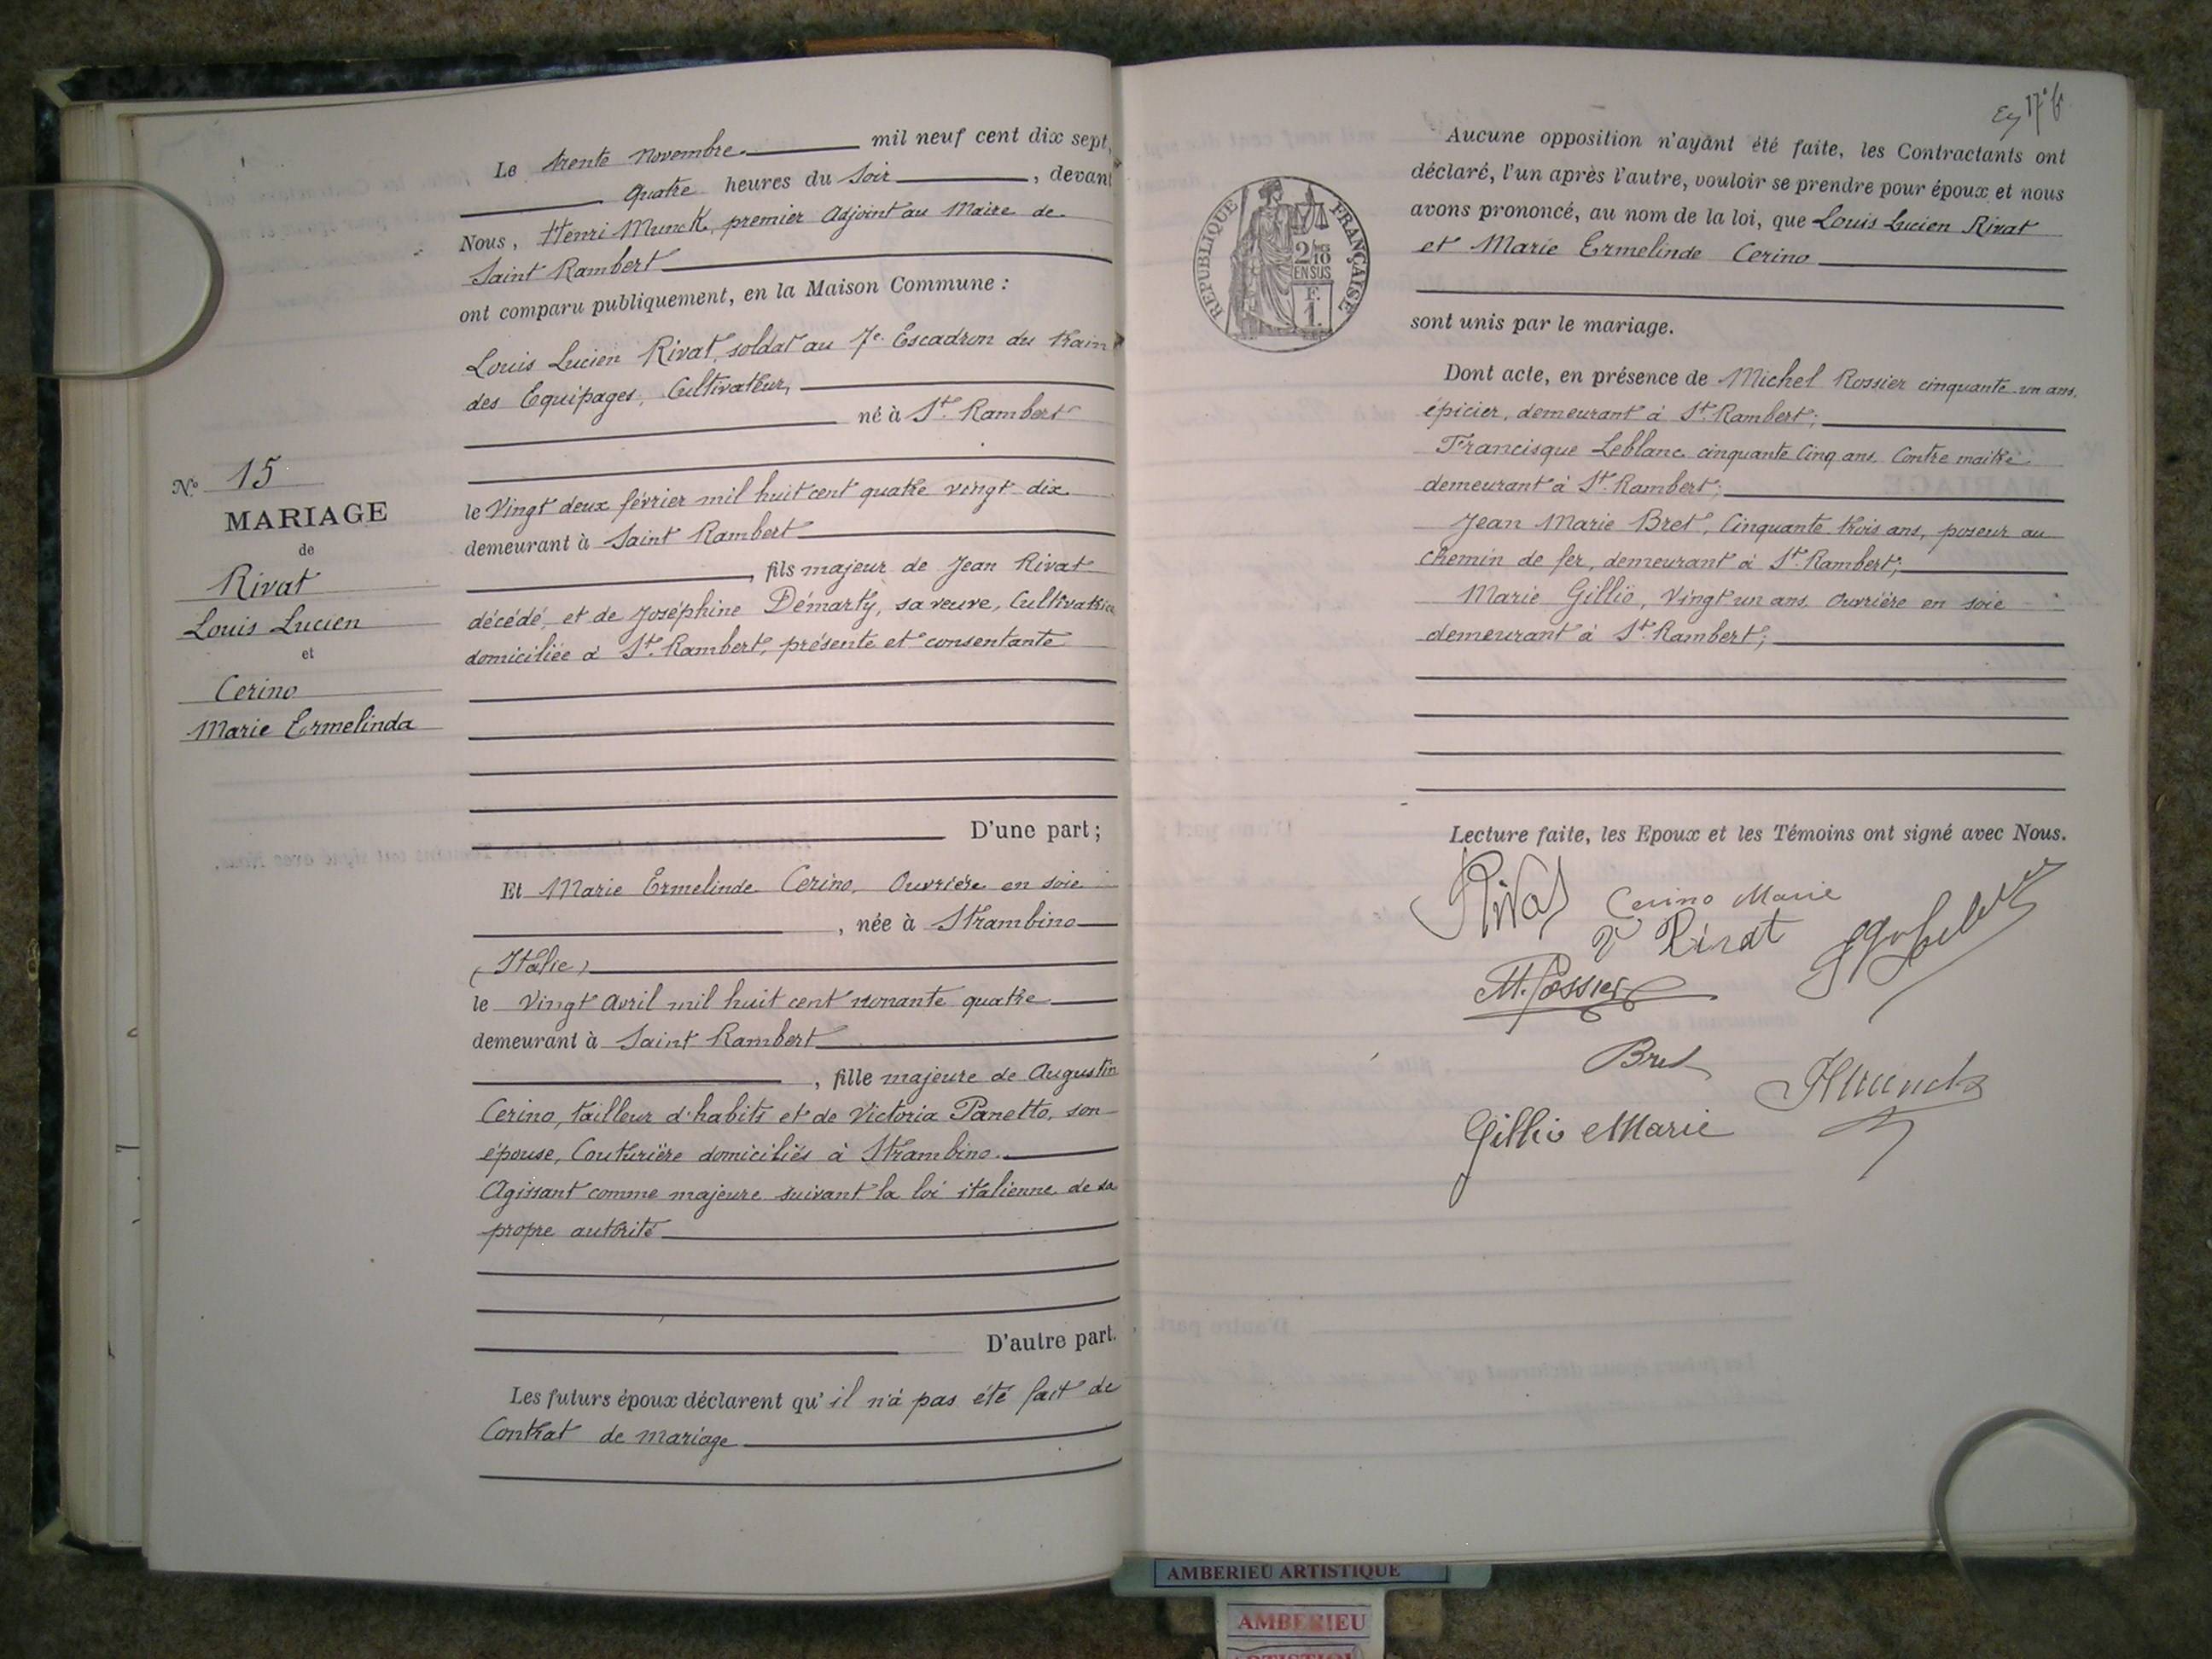 Le trente novembre mil neuf cent dix sept,
quatre heures du soir, devant
Nous, Henri Munck, premier Adjoint au Maire de
Saint Rambert
ont comparu publiquement, en la Maison Commune :
Louis Lucien Rivat, soldat au 7e Escadron du train
des Equipages, Cultivateur,
né à St. Rambert
le Vingt deux février mil huit cent quatre vingt dix
demeurant à Saint Rambert
, fils majeur de Jean Rivat
décédé, et de Joséphine Démarty, sa veuve, Cultivatrice
domiciliée à St. Rambert, présente et consentante
D'une part ;
Et Marie Ermelinde Cerino, Ouvrière en soie
, née à Strambino
(Italie)
le Vingt Avril mil huit cent nonante quatre
demeurant à Saint Rambert
, fille majeure de Augustin
Cerino, tailleur d'habits et de Victoria Panetto, son
épouse, Couturière domiciliés à Strambino.
Agissant comme majeure suivant la loi italienne de sa
propre autorité
D'autre part.
Les futurs époux déclarent qu'il n'a pas été fait de
Contrat de mariage
N° 15
MARIAGE
de
Rivat
Louis Lucien
et
Cerino
Marie Ermelinda
Aucune opposition n'ayant été faite, les Contractants ont
déclaré, l'un après l'autre, vouloir se prendre pour époux et nous
avons prononcé, au nom de la loi, que Louis Lucien Rivat
et Marie Ermelinde Cerino
sont unis par le mariage.
Dont acte, en présence de Michel Rossier cinquante-un ans,
épicier, demeurant à St. Rambert;
Francisque Leblanc cinquante Cinq ans, Contre maitre
demeurant à St. Rambert;
Jean Marie Bret, Cinquante trois ans, poseur au
chemin de fer, demeurant à St. Rambert;
Marie Gillio, Vingt un ans, Ouvrière en soie
demeurant à St. Rambert;
Lecture faite, les Epoux et les Témoins ont signé avec Nous.
Rivat
Cerino Marie
Rivat
M. Rossier
Bret
HMunck
Gillio Marie
REPUBLIQUE FRANÇAISE
2/10
EN SUS
F.
1.
AMBERIEU ARTISTIQUE
AMBERIEU
ARTISTIQUE